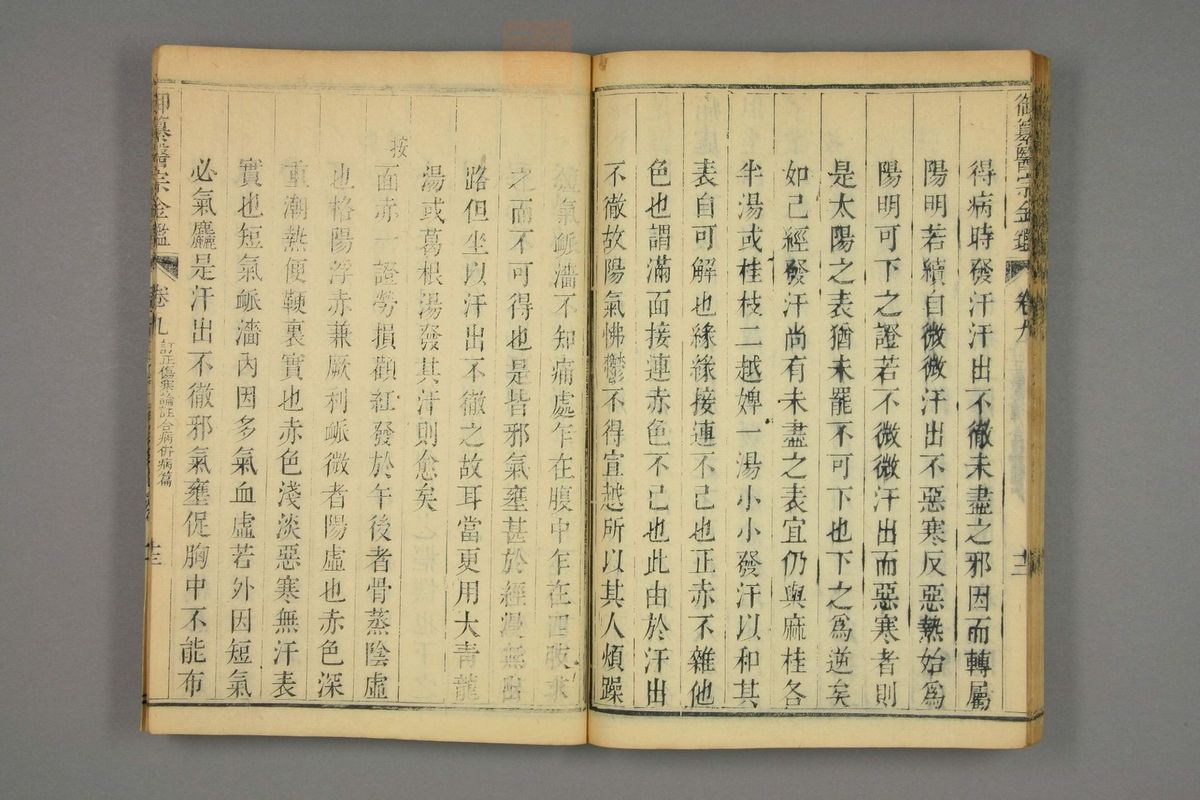 御纂醫宗金鑑 卷九 十二
得病時發汗汗出不徹未盡之邪因而轉屬
陽明若續自微微汗出不惡寒反惡熱始爲
陽明可下之證若不微微汗出而惡寒者則
是太陽之表猶未罷不可下也下之爲逆矣
如已經發汗尚有未盡之表宜仍與麻桂各
半湯或桂枝二越婢一湯小小發汗以和其
表自可解也緣緣接連不已也正赤不雜他
色也謂滿面接連赤色不已也此由於汗出
不徹故陽氣怫鬱不得宣越所以其人煩躁
短氣脈濇不知痛處乍在腹中乍在四肢求
之而不可得也是皆邪氣壅甚於經漫無出
路但坐以汗出不徹之故耳當更用大青龍
湯或葛根湯發其汗則愈矣
按
面赤一證勞損顴紅發於午後者骨蒸陰虛
也格陽浮赤兼厥利脈微者陽虛也赤色深
重潮熱便鞕裏實也赤色淺淡惡寒無汗表
實也短氣脈濇內因多氣血虛若外因短氣
必氣麤是汗出不徹邪氣壅促胸中不能布
御纂醫宗金鑑 卷九 訂正傷寒論註合病併病篇 十三